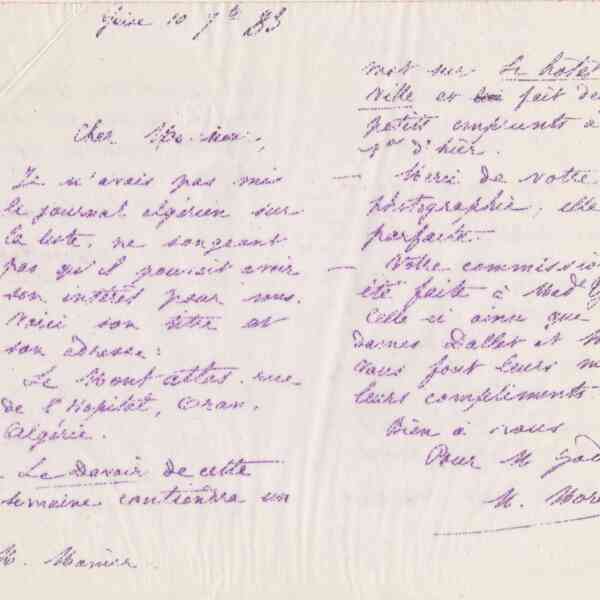 Guise 10 7bre 83
Cher Monsieur,
Je n'avais pas mis
le journal algérien sur
la liste, ne songeant
pas qu'il pouvait avoir
son intérêt pour vous.
Voici son titre et
son adresse:
Le Mont atlas, rue
de l'Hopital, Oran,
Algérie.
Le Devoir de cette
semaine contiendra un
M.
mot sur Le hôtel
Ville et fait de
petits emprunts à
d'hier.
— Merci de votre
photographie; elle
parfaite.
— Votre commission
été faite à Made
Celle ci ainsi que
dames Dallet et
vous font leurs
leurs compliments.
Bien à vous
Pour M God
M. More